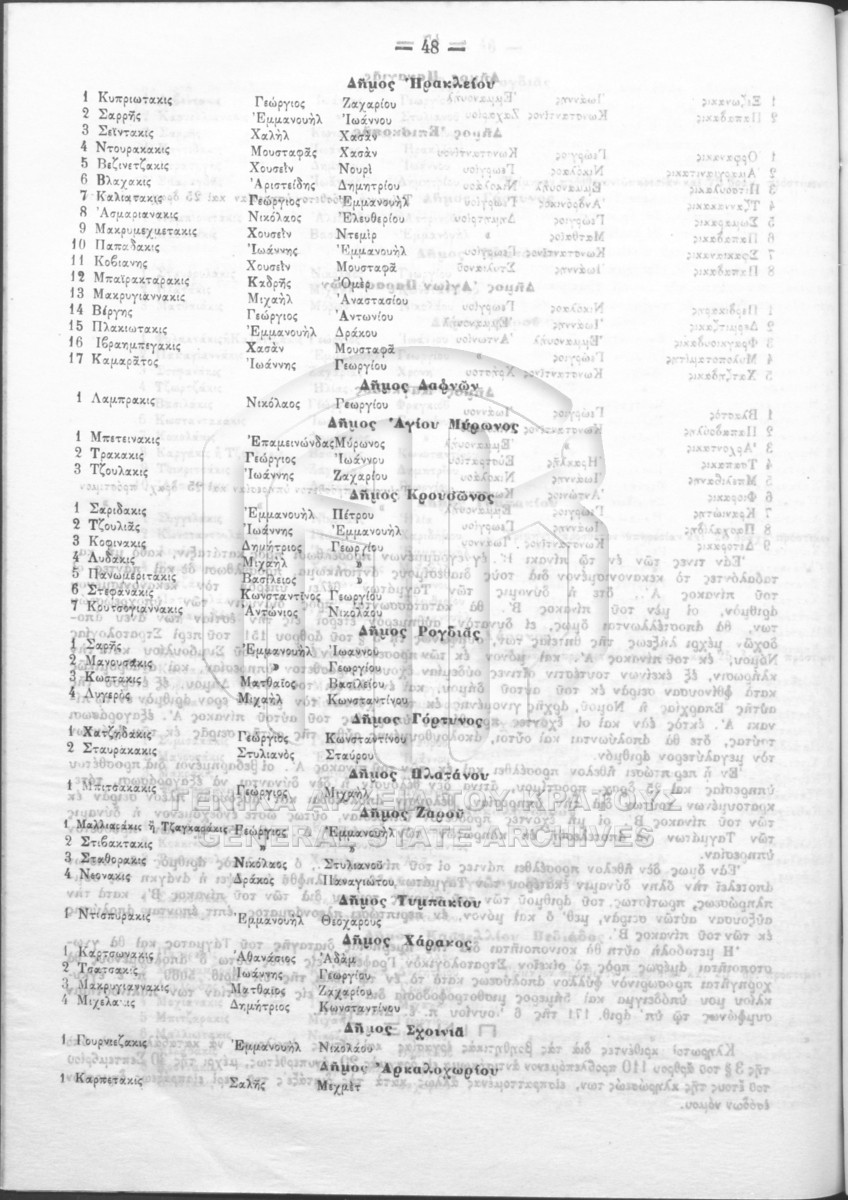 = 48 =
Δῆμος Ἡρακλείου
1 Κυπριωτακις Γεώργιος Ζαχαρίου
2 Σαρρῆς Ἐμμανουὴλ Ἰωάννου
3 Σεϊντακις Χαλὴλ Χασὰν
4 Ντουρακακις Μουσταφᾶς Χασὰν
5 Βεζινετζακις Χουσεΐν Νουρὶ
6 Βλαχακις Ἀριστείδης Δημητρίου
7 Καλιατακις Γεώργιος Ἐμμανουὴλ
8 Ἀσμαριανακις Νικόλαος Ἐλευθερίου
9 Μακρυμεχμετακις Χουσεῒν Ντεμὶρ
10 Παπαδακις Ἰωάννης Ἐμμανουὴλ
11 Κοβιανης Χουσεῒν Μουσταφᾶ
12 Μπαϊρακταρακις Καδρῆς Ὁμὲρ
13 Μακρυγιαννακις Μιχαὴλ Ἀναστασίου
14 Βέργης Γεώργιος Ἀντωνίου
15 Πλακιωτακις Ἐμμανουὴλ Δράκου
16 Ἰβραημπεγακις Χασὰν Μουσταφᾶ
17 Καμαρᾶτος Ἰωάννης Γεωργίου
Δῆμος Δαφνῶν
1 Λαμπρακις Νικόλαος Γεωργίου
Δῆμος Ἁγίου Μύρωνος
1 Μπετεινακις Ἐπαμεινώνδας Μύρωνος
2 Τρακακις Γεώργιος Ἰωάννου
3 Τζουλακις Ἰωάννης Ζαχαρίου
Δῆμος Κρουσῶνος
1 Σαριδακις Ἐμμανουὴλ Πέτρου
2 Τζουλιᾶς Ἰωάννης Ἐμμανουὴλ
3 Κοφινακις Δημήτριος Γεωργίου
4 Λυδάκις Μιχαὴλ »
5 Πανωμεριτακις Βασίλειος »
6 Στεφανακις Κωνσταντῖνος Γεωργίου
7 Κουτσογιαννακις Ἀντώνιος Νικολάου
Δῆμος Ρογδιᾶς
1 Σαρῆς Ἐμμανουὴλ Ἰωάννου
2 Μανουσακις » Γεωργίου
3 Κωστακις Ματθαῖος Βασιλείου
4 Λυγερὸς Μιχαὴλ Κωνσταντίνου
Δῆμος Γόρτυνος
1 Χατζηδακις Γεώργιος Κωνσταντίνου
2 Σταυρακακις Στυλιανὸς Σταύρου
Δῆμος Πλατάνου
1 Μπιτσακακις Γεώργιος Μιχαὴλ
ΓΕΝΙΚΑ ΑΡΧΕΙΑ ΤΟΥ ΚΡΑΤΟΥΣ
Δῆμος Ζαροῦ
1 Μαλλιαρακις ἢ Τζαγκαρακις Γεώργιος Ἐμμανουὴλ
GENERAL STATE ARCHIVES
2 Στιβακτακις » »
3 Σταθορακις Νικόλαος Στυλιανοῦ
4 Νεονακις Δράκος Παναγιώτου
Δῆμος Τυμπακίου
1 Ντισπυρακις Ἐμμανουὴλ Θεοχάρους
Δῆμος Χάρακος
1 Καρτσωνακις Ἀθανάσιος Ἀδὰμ
2 Τσατσακις Ἰωάννης Γεωργίου
3 Μακρυγιαννακις Ματθαῖος Ζαχαρίου
4 Μιχελακις Δημήτριος Κωνσταντίνου
Δῆμος Σχοινιᾶ
1 Γουρνιεζακις Ἐμμανουὴλ Νικολάου
Δῆμος Ἀρκαλοχωρίου
1 Καρπετακις Σαλῆς Μιχμὲτ